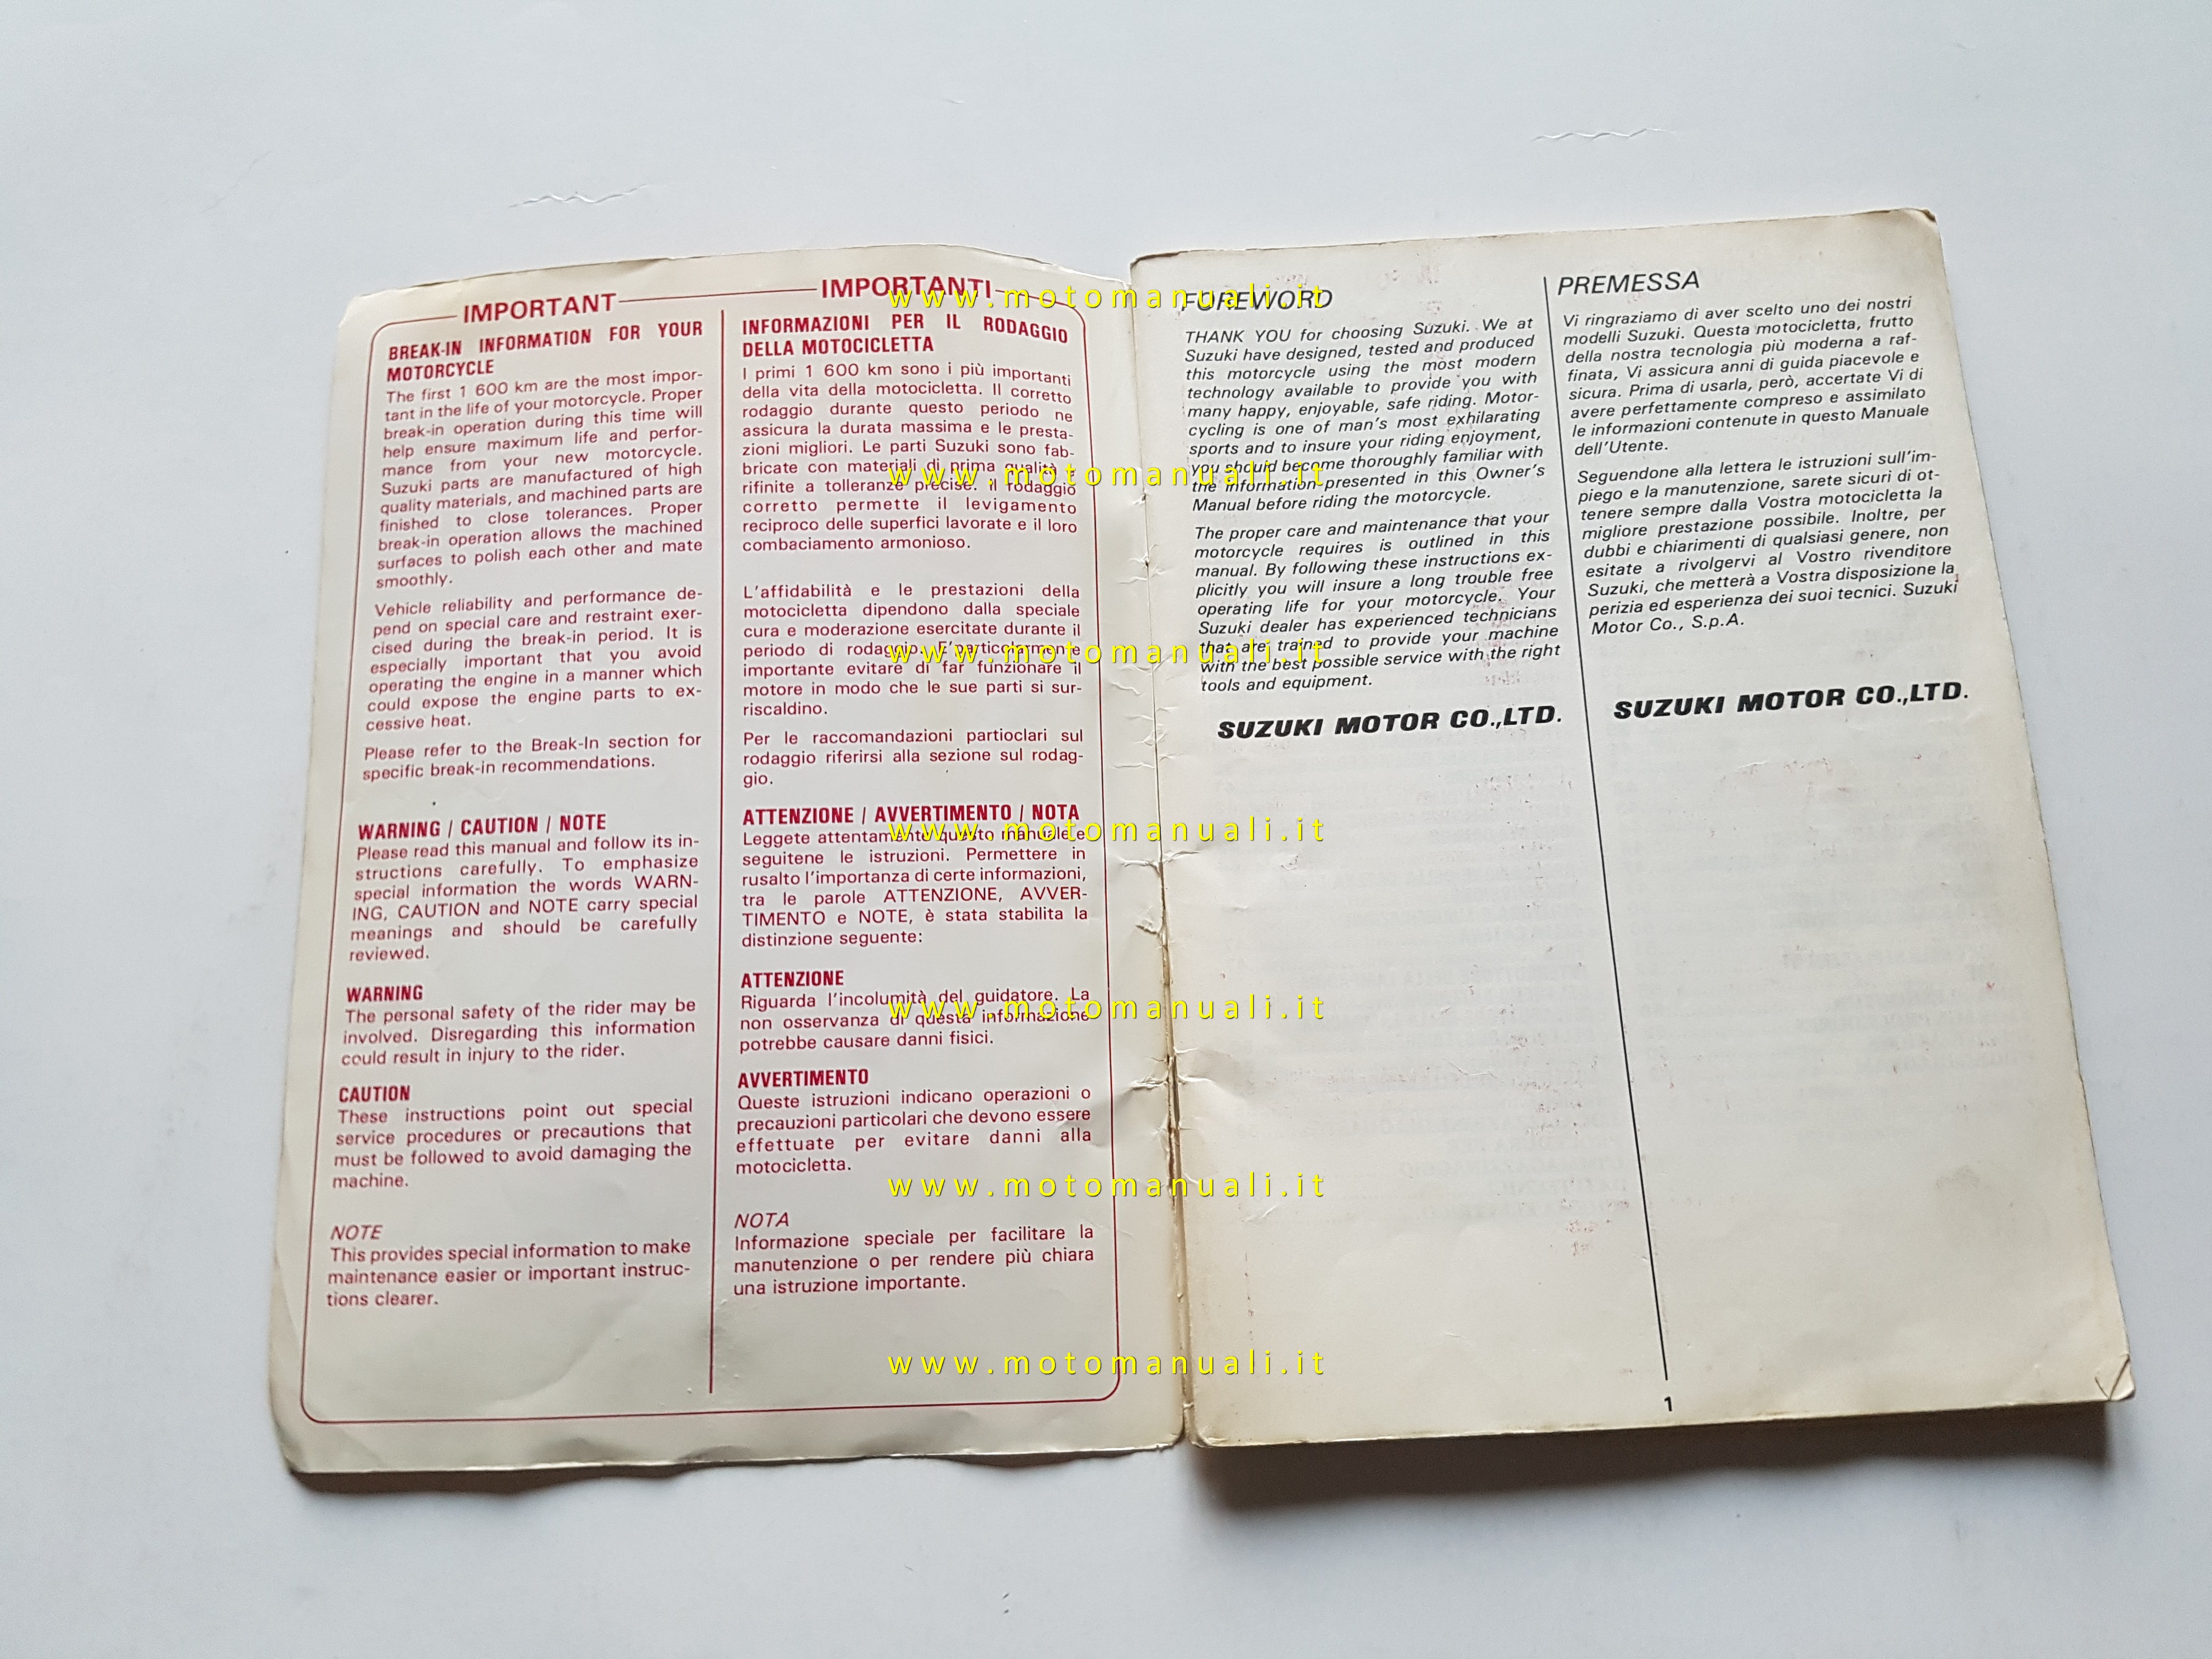 IMPORTANT
BREAK-IN INFORMATION FOR YOUR
MOTORCYCLE
The first 1 600 km are the most impor-
tant in the life of your motorcycle. Proper
break-in operation during this time will
help ensure maximum life and perfor-
mance from your new motorcycle.
Suzuki parts are manufactured of high
quality materials, and machined parts are
finished to close tolerances. Proper
break-in operation allows the machined
surfaces to polish each other and mate
smoothly.
Vehicle reliability and performance de-
pend on special care and restraint exer-
cised during the break-in period. It is
especially important that you avoid
operating the engine in a manner which
could expose the engine parts to ex-
cessive heat.
Please refer to the Break-In section for
specific break-in recommendations.
WARNING / CAUTION / NOTE
Please read this manual and follow its in-
structions carefully. To emphasize
special information the words WARN-
ING, CAUTION and NOTE carry special
meanings and should be carefully
reviewed.
WARNING
The personal safety of the rider may be
involved. Disregarding this information
could result in injury to the rider.
CAUTION
These instructions point out special
service procedures or precautions that
must be followed to avoid damaging the
machine.
NOTE
This provides special information to make
maintenance easier or important instruc-
tions clearer.
IMPORTANTI
INFORMAZIONI PER IL RODAGGIO
DELLA MOTOCICLETTA
I primi 1 600 km sono i più importanti
della vita della motocicletta. Il corretto
rodaggio durante questo periodo ne
assicura la durata massima e le presta-
zioni migliori. Le parti Suzuki sono fab-
bricate con materiali di prima qualità e
rifinite a tolleranze precise. Il rodaggio
corretto permette il levigamento
reciproco delle superfici lavorate e il loro
combaciamento armonioso.
L'affidabilità e le prestazioni della
motocicletta dipendono dalla speciale
cura e moderazione esercitate durante il
periodo di rodaggio. E'particolarmente
importante evitare di far funzionare il
motore in modo che le sue parti si sur-
riscaldino.
Per le raccomandazioni partioclari sul
rodaggio riferirsi alla sezione sul rodag-
gio.
ATTENZIONE / AVVERTIMENTO / NOTA
Leggete attentamente questo manuale e
seguitene le istruzioni. Permettere in
rusalto l'importanza di certe informazioni,
tra le parole ATTENZIONE, AVVER-
TIMENTO e NOTE, è stata stabilita la
distinzione seguente:
ATTENZIONE
Riguarda l'incolumità del guidatore. La
non osservanza di questa informazione
potrebbe causare danni fisici.
AVVERTIMENTO
Queste istruzioni indicano operazioni o
precauzioni particolari che devono essere
effettuate per evitare danni alla
motocicletta.
NOTA
Informazione speciale per facilitare la
manutenzione o per rendere più chiara
una istruzione importante.
FOREWORD
THANK YOU for choosing Suzuki. We at
Suzuki have designed, tested and produced
this motorcycle using the most modern
technology available to provide you with
many happy, enjoyable, safe riding. Motor-
cycling is one of man's most exhilarating
sports and to insure your riding enjoyment,
you should become thoroughly familiar with
the information presented in this Owner's
Manual before riding the motorcycle.
The proper care and maintenance that your
motorcycle requires is outlined in this
manual. By following these instructions ex-
plicitly you will insure a long trouble free
operating life for your motorcycle. Your
Suzuki dealer has experienced technicians
that are trained to provide your machine
with the best possible service with the right
tools and equipment.
SUZUKI MOTOR CO.,LTD.
PREMESSA
Vi ringraziamo di aver scelto uno dei nostri
modelli Suzuki. Questa motocicletta, frutto
della nostra tecnologia più moderna a raf-
finata, Vi assicura anni di guida piacevole e
sicura. Prima di usarla, però, accertate Vi di
avere perfettamente compreso e assimilato
le informazioni contenute in questo Manuale
dell'Utente.
Seguendone alla lettera le istruzioni sull'im-
piego e la manutenzione, sarete sicuri di ot-
tenere sempre dalla Vostra motocicletta la
migliore prestazione possibile. Inoltre, per
dubbi e chiarimenti di qualsiasi genere, non
esitate a rivolgervi al Vostro rivenditore
Suzuki, che metterà a Vostra disposizione la
perizia ed esperienza dei suoi tecnici. Suzuki
Motor Co., S.p.A.
SUZUKI MOTOR CO.,LTD.
1
www.motomanuali.it
www.motomanuali.it
www.motomanuali.it
www.motomanuali.it
www.motomanuali.it
www.motomanuali.it
www.motomanuali.it